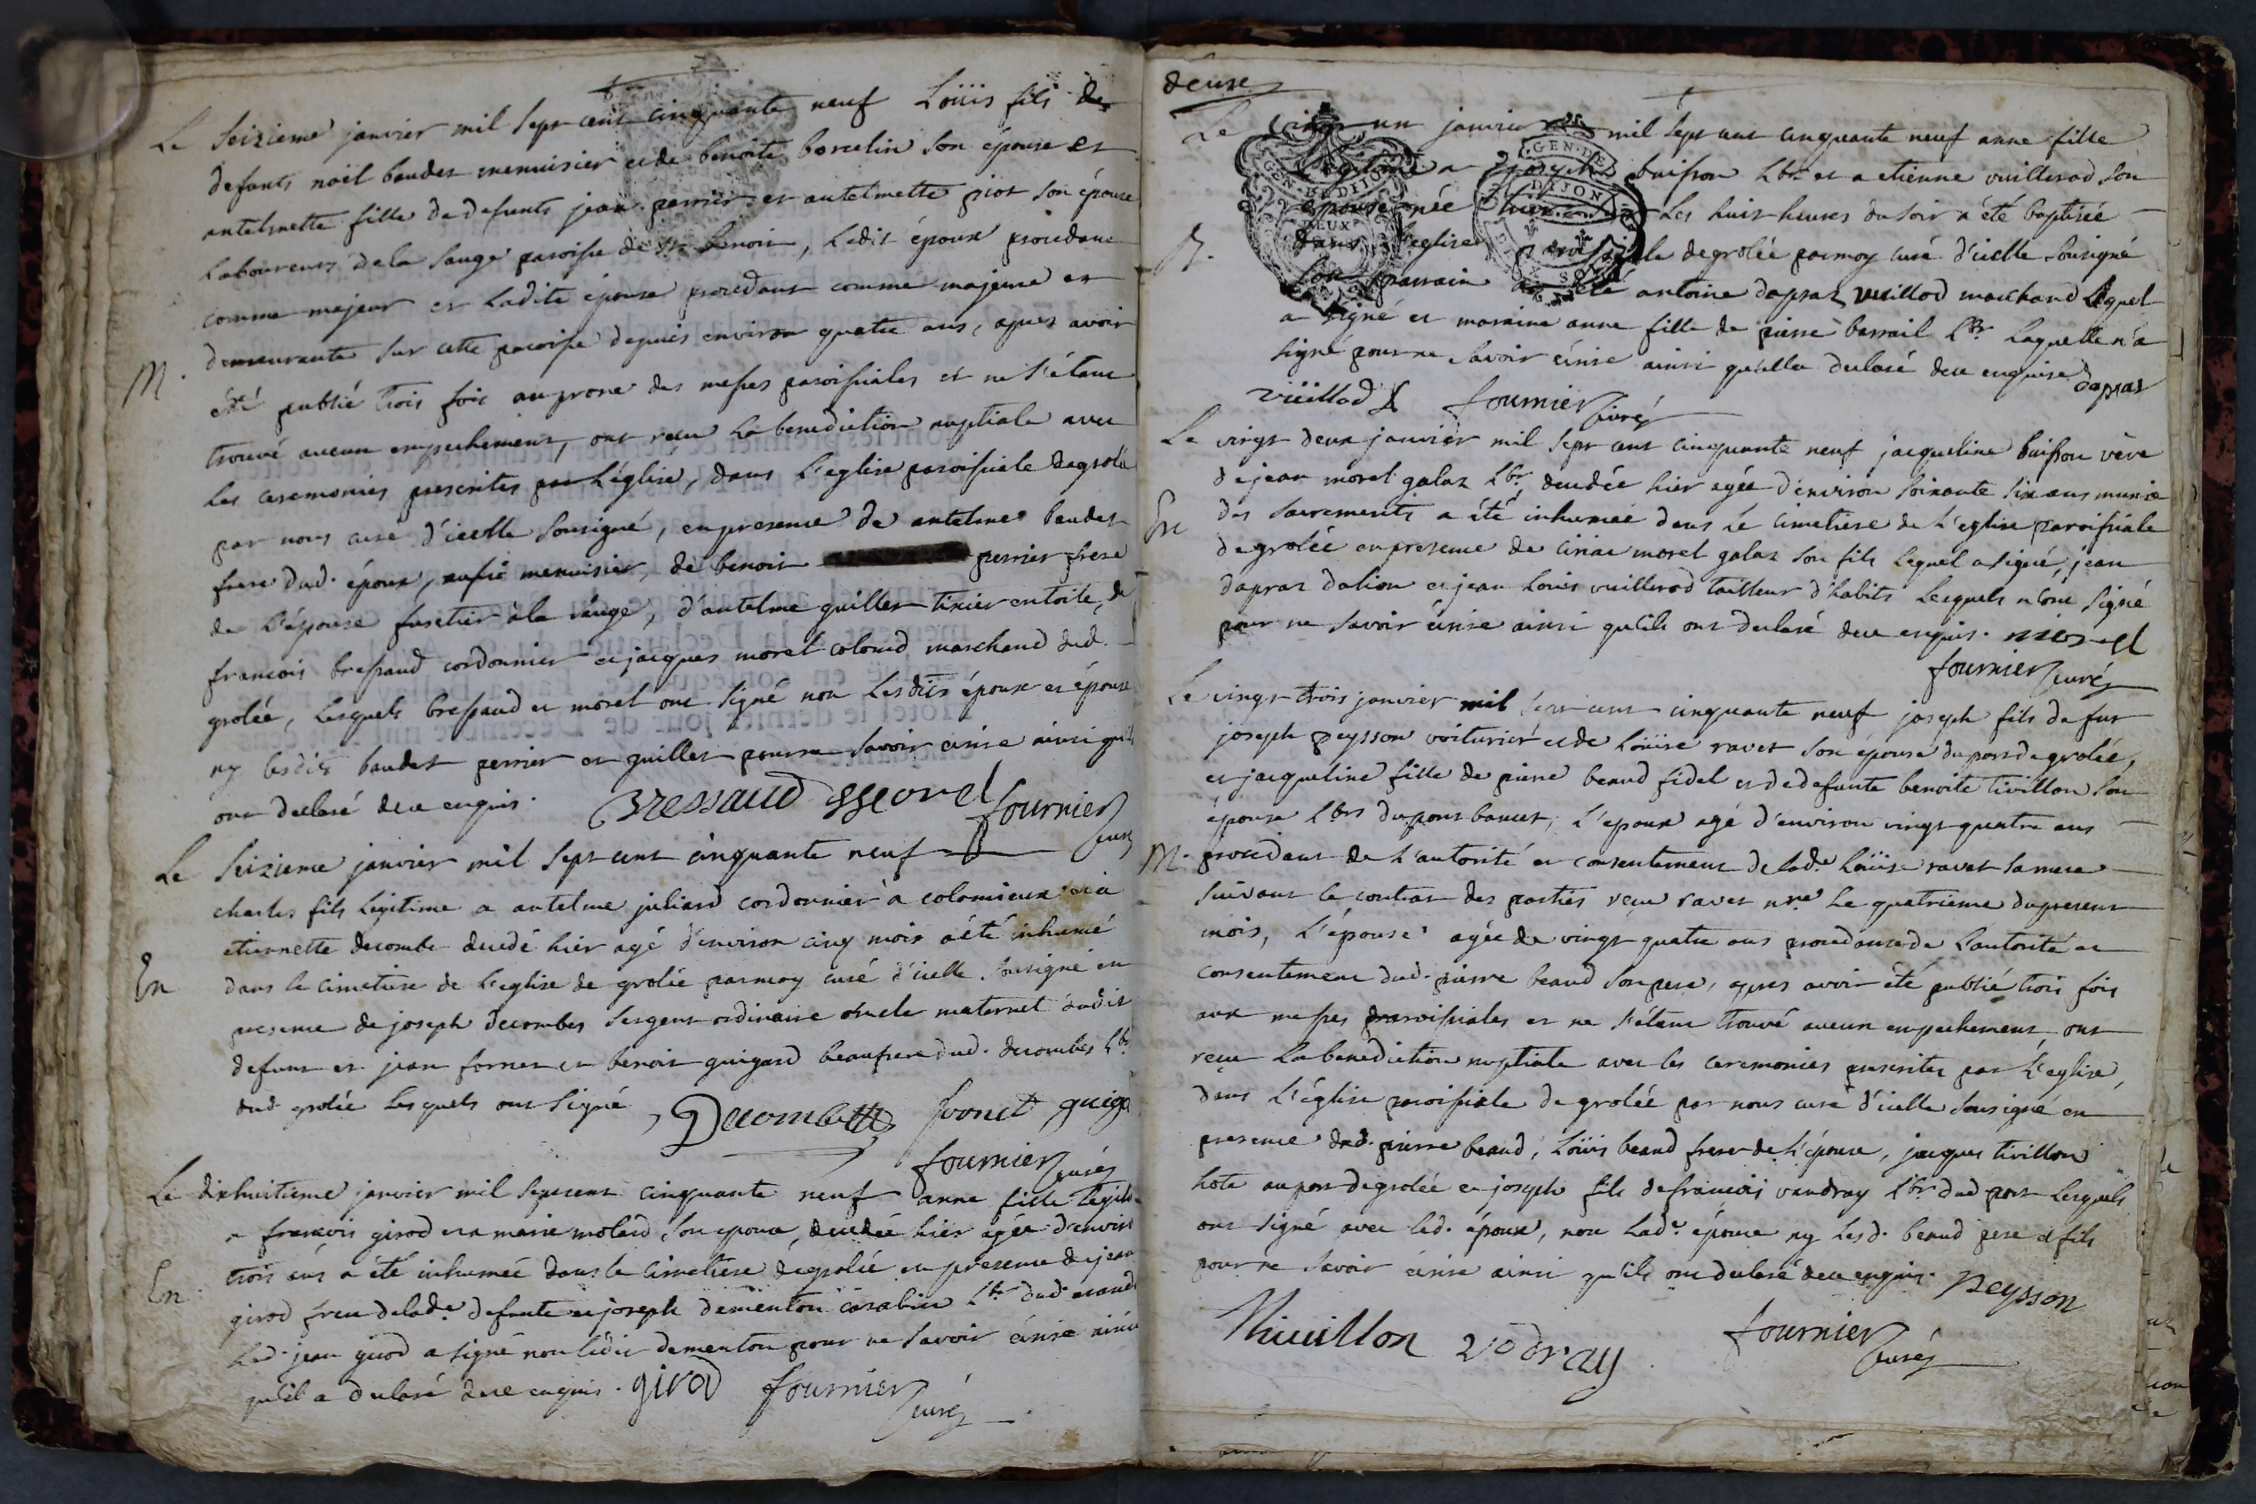 Le Seizieme janvier mil Sept cent cinquante neuf Loüis fils de
defunts noël baudet menuisier et de benoite borcelin son épouse et
antelmette fille de defunts jean perrier et antelmette piot son épouse
Laboureurs de la Sauge paroisse de St benoit, Ledit époux procedant
comme majeur et Ladite épouse procedant comme majeure et
demeurante Sur cette paroisse depuis environ quatre ans, apres avoir
M.
été publié trois fois au prone des messes paroissiales et ne S'étant
trouvé aucun empechement, ont reçu La benediction nuptiale avec
Les ceremonies prescrites par L'église, dans L'eglise paroissiale de grolée
par nous curé d'icelle Sousigné, en presence de antelme baudet
frere dud. époux, aussi menuisier, de benoit perrier frere
de L'épouse fustier à la sauge, d'antelme guillet tixier en toile, de
francois bressaud cordonnier et jacques morel colomd marchand dud.
grolée, Lesquels bressaud et morel ont Signé non Lesdits époux et épouse
ny lesdits baudet perrier et guillet pour ne Savoir écrire ainsi qu'ils
ont declaré de ce enquis. Bressaud morel fournier curé
Le Seizieme janvier mil Sept cent cinquante neuf
charles fils Legitime a antelme juliard cordonnier à colomieux et à
etiennette decombe decedé hier agé d'environ cinq mois a été inhumé
En dans le cimetiere de L'eglise de grolée par moy curé d'icelle Sousigné en
presence de joseph decombes Sergent ordinaire oncle maternel dudit
defunt et jean fornet et benoit guigard beaufrere dud. decombes Lbrs
dud grolée Lesquels ont Signé, Decombes fonet guiga
fournier curé
Le dixhuitieme janvier mil Septcent cinquante neuf anne fille Legit
a francois girod et a marie molard Son epouse, decedée hier agée d'enviro
trois ans a été inhumée dans le Cimetiere de grolée en presence de jean
En girod frere de lade. defunte et joseph dementon carabin Lbr dud.
Led. jean girod a signé non Ledit dementon pour ne Savoir écrire ainsi
qu'il a declaré de ce enquis. girod fournier curé
deux
Le vingt un janvier mil Sept cent cinquante neuf anne fille
Legitime a joseph buisson Lbr. et a etienne vuillerod Son
epouse née hier Les huit heures du Soir a été baptisée
B. dans L'eglise paroissiale de grolée par moy curé d'icelle Sousigné
Son parrain a été antoine dapraz vuillod marchand Lequel
a signé et maraine anne fille de pierre barrail Lbr. Laquelle n'a
signé pour ne Savoir écrire ainsi qu'elle a declaré de ce enquise Dapraz
viüillod fournier curé
Le vingt deux janvier mil Sept cent cinquante neuf jacqueline buisson veve
de jean morel galaz Lbr. decedée hier agée d'environ Soixante Six ans munie
En des Sacrements a été inhumée dans Le Cimetiere de L'eglise paroissiale
de grolée en presence de ciriac morel galaz son fils Lequel a signé, jean
dapraz dalion et jean Louis vuillerod tailleur d'habits Lesquels n'ont Signé
pour ne Savoir écrire ainsi qu'ils ont declaré de ce enquis. morel
fournier curé
Le vingt trois janvier mil Sept cent cinquante neuf joseph fils de fut
joseph peysson voiturier et de Loüise ravet son épouse du port de grolée,
et jacqueline fille de pierre beaud fidel et de defunte benoite tivillon Son
épouse Lbrs du pont bancet, L'epoux agé d'environ vingt quatre ans
M. procedant de L'autorité et consentement de lade. Loüise ravet Sa mere
Suivant le contrat des parties reçu ravet nre. Le quatrieme du present
mois, L'épouse agée de vingt quatre ans procedante de L'autorité et
consentement dud. pierre beaud Son pere, apres avoir été publié trois fois
aux messes paroissiales et ne S'étant trouvé aucun empechement, ont
reçu La benediction nuptiale avec les ceremonies prescrites par L'eglise,
dans L'église paroissiale de grolée par nous curé d'icelle Sousigné en
presence dud. pierre beaud, Loüis beaud frere de L'épouse, jacques tivillon
hote au port de grolée et joseph fils de francois vaudray Lbr. dud port Lesquels
ont signé avec led. époux, non Lade. épouse ny Lesd. beaud pere et fils
pour ne Savoir écrire ainsi qu'ils ont declaré de ce enquis. peysson
Thivillon vodray fournier curé